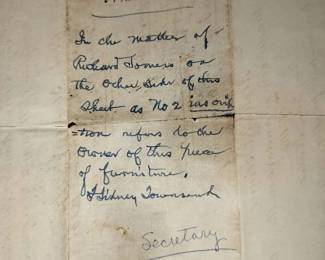 In the matter of
Richard Somers on
the other side of this
sheet as No 2 inscrip
=tion refers to the
owner of this piece
of furniture.
Sidney Townsend
Secretary